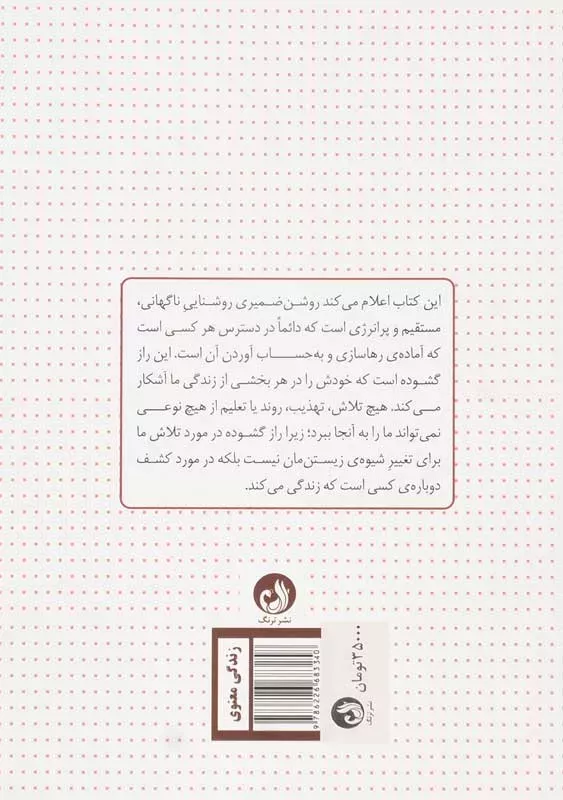 این کتاب اعلام می‌کند روشن‌ضمیری روشنایی ناگهانی،
مستقیم و پرانرژی است که دائماً در دسترس هر کسی است
که آماده‌ی رهاسازی و به‌حساب آوردن آن است. این راز
گشوده است که خودش را در هر بخشی از زندگی ما آشکار
می‌کند. هیچ تلاش، تهذیب، روند یا تعلیم از هیچ نوعی
نمی‌تواند ما را به آنجا ببرد؛ زیرا راز گشوده در مورد تلاش ما
برای تغییرِ شیوه‌ی زیستن‌مان نیست بلکه در مورد کشف
دوباره‌ی کسی است که زندگی می‌کند.
نشر ترنگ
زندگی معنوی
9 786226 683340
۳۵۰۰۰ تومان
نشر ترنگ